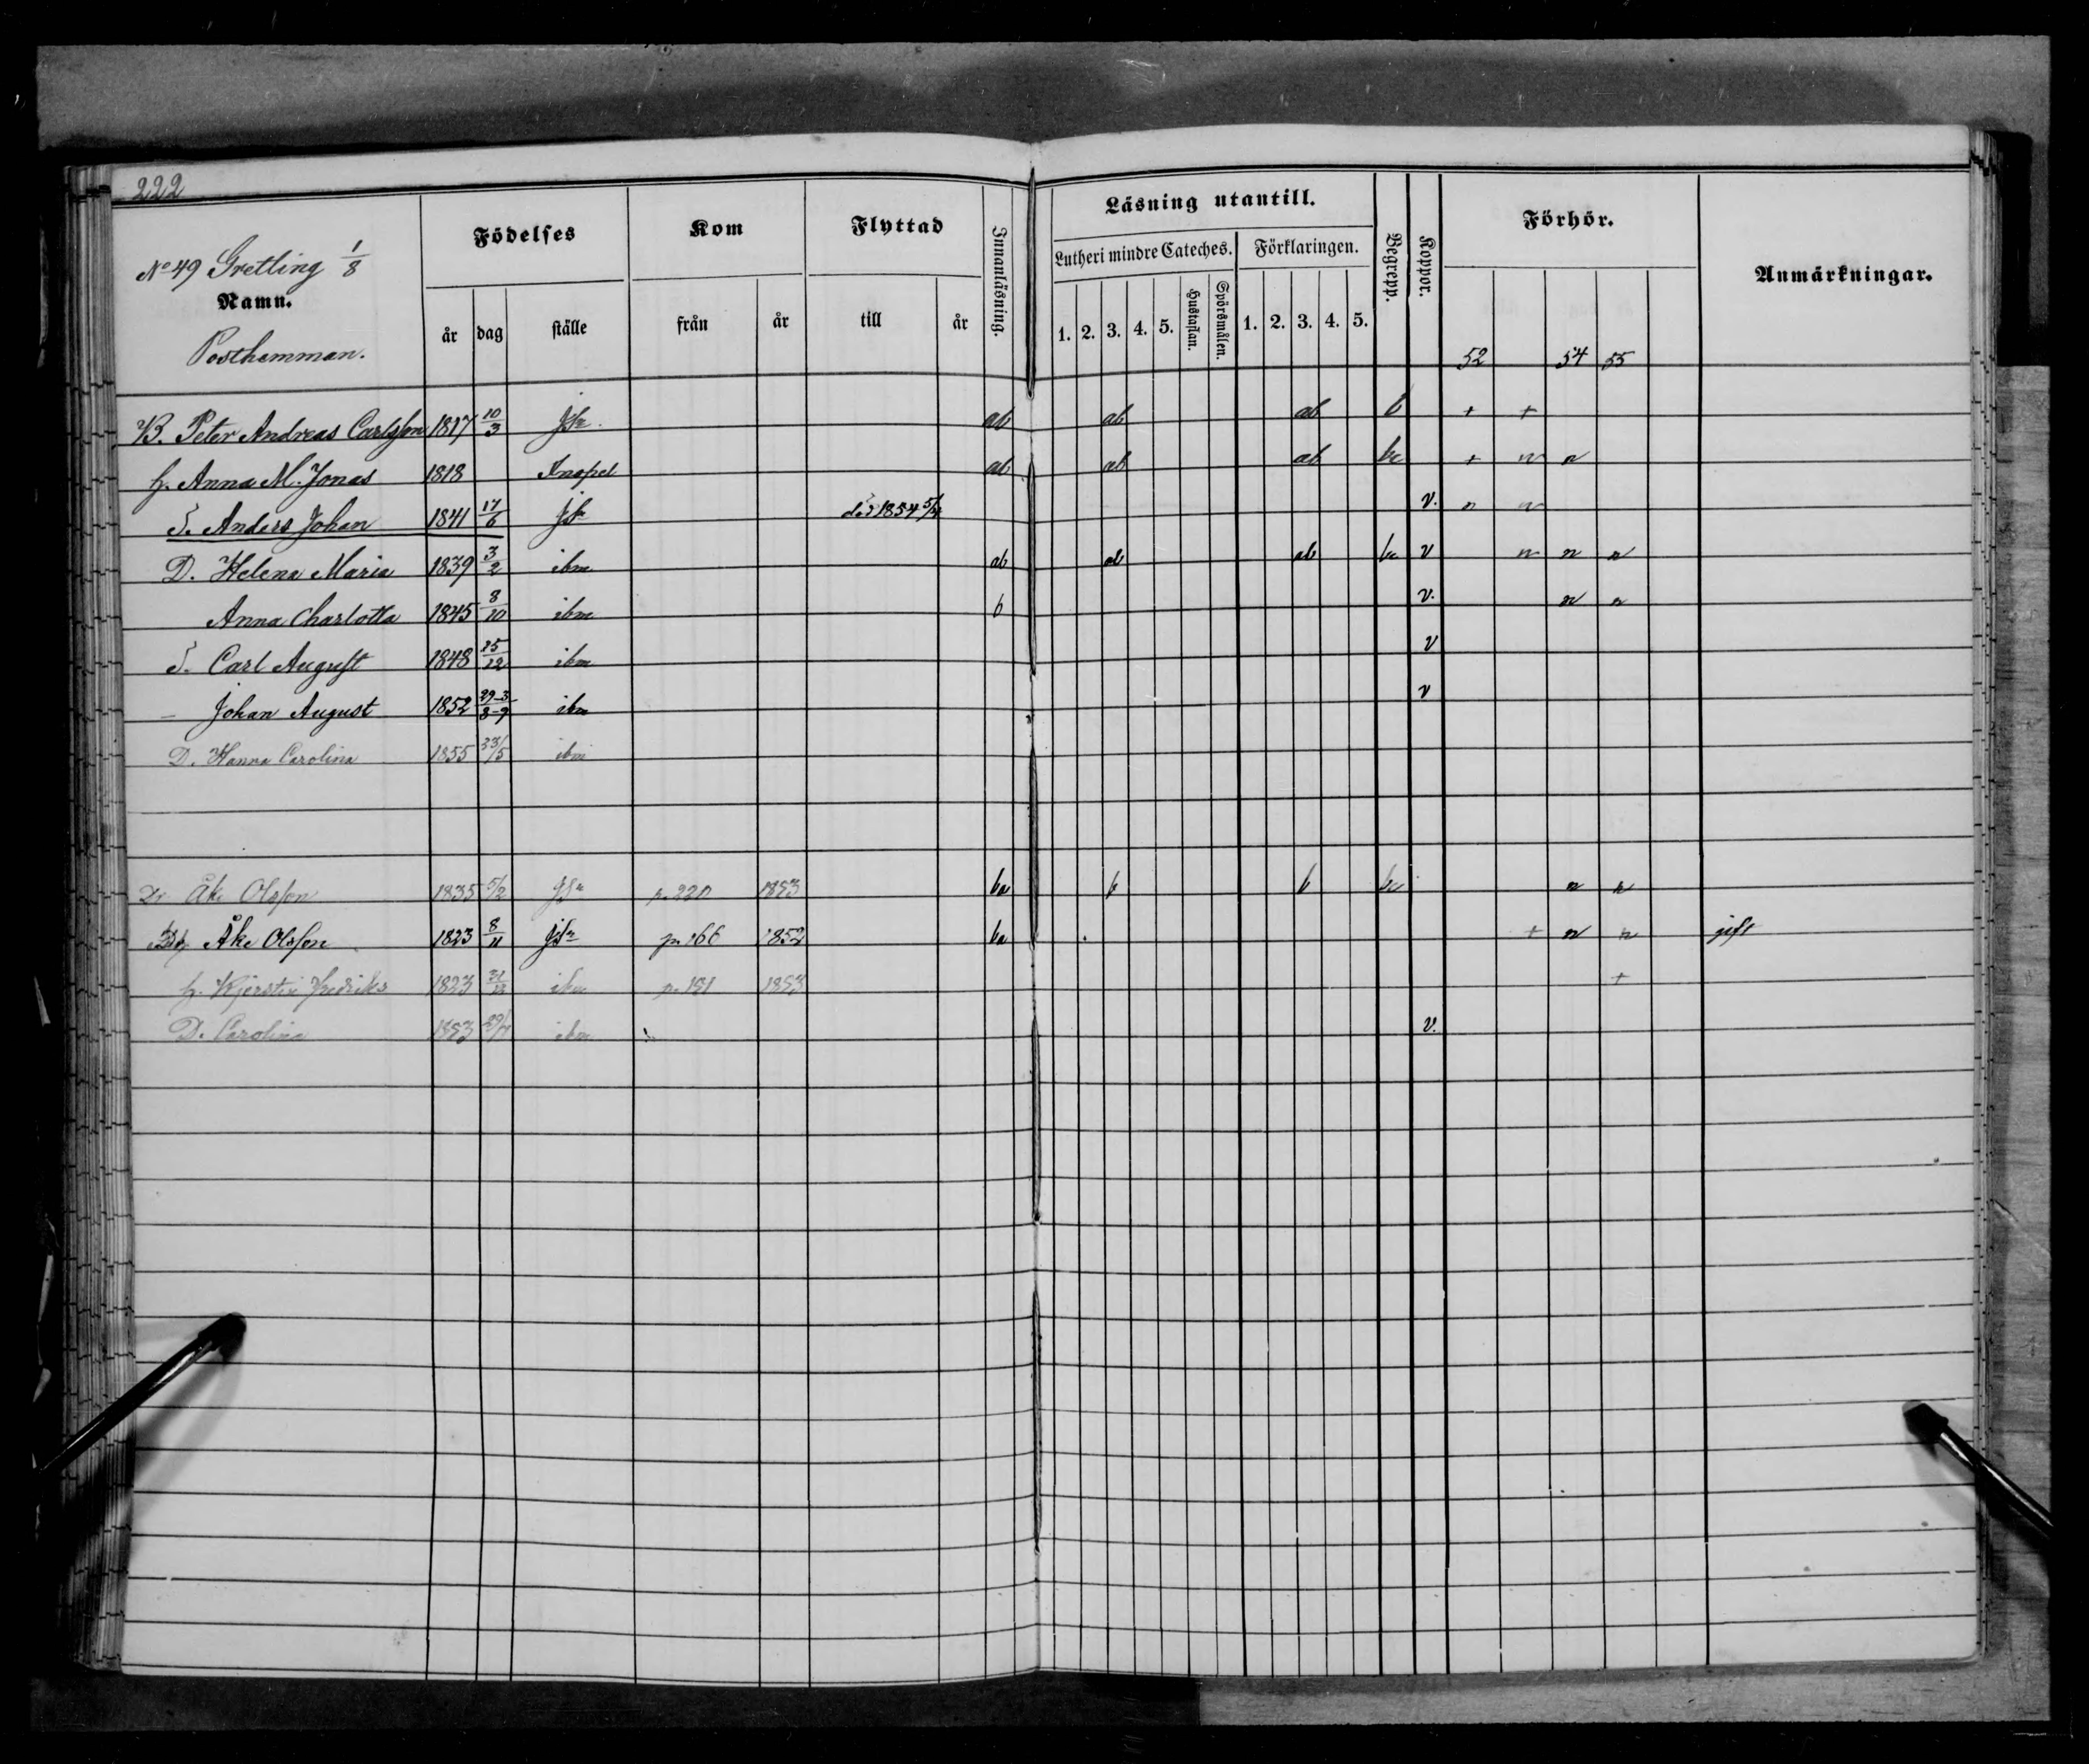 222
No 49 Gretling 1/8
Namn.
Posthemman.
Födelses
år dag ställe
Kom
från år
Flyttad
till år
Innanläsning.
Läsning utantill.
Lutheri mindre Cateches. Förklaringen.
1. 2. 3. 4. 5. Hustaflan. Spörsmålen. 1. 2. 3. 4. 5.
Begrepp.
Koppor.
Förhör.
52 54 55
Anmärkningar.
B. Peter Andreas Carlsson 1817 10/3 ab ab ab b + +
h. Anna M. Jonas 1818 ab ab ab bc + n n
S. Anders Johan 1841 17/6 död 1854 v. n n
D. Helena Maria 1839 3/2 ibm ab ab ab bc v n n n
Anna Charlotta 1845 8/10 ibm b v. n n
S. Carl August 1848 25/12 ibm v
– Johan August 1852 29–3/8–9 ibm v
D. Hanna Carolina 1855 23/5 ibm
Dr Åke Olsson 1835 5/2 p. 220 1853 ba b b bc n n
Åke Olsson 1823 8/11 p. 166 1852 ba + n n gift
h. Kjerstin Fredriks 1823 31/12 ibm p. 131 1853 +
D. Carolina 1853 ibm v.